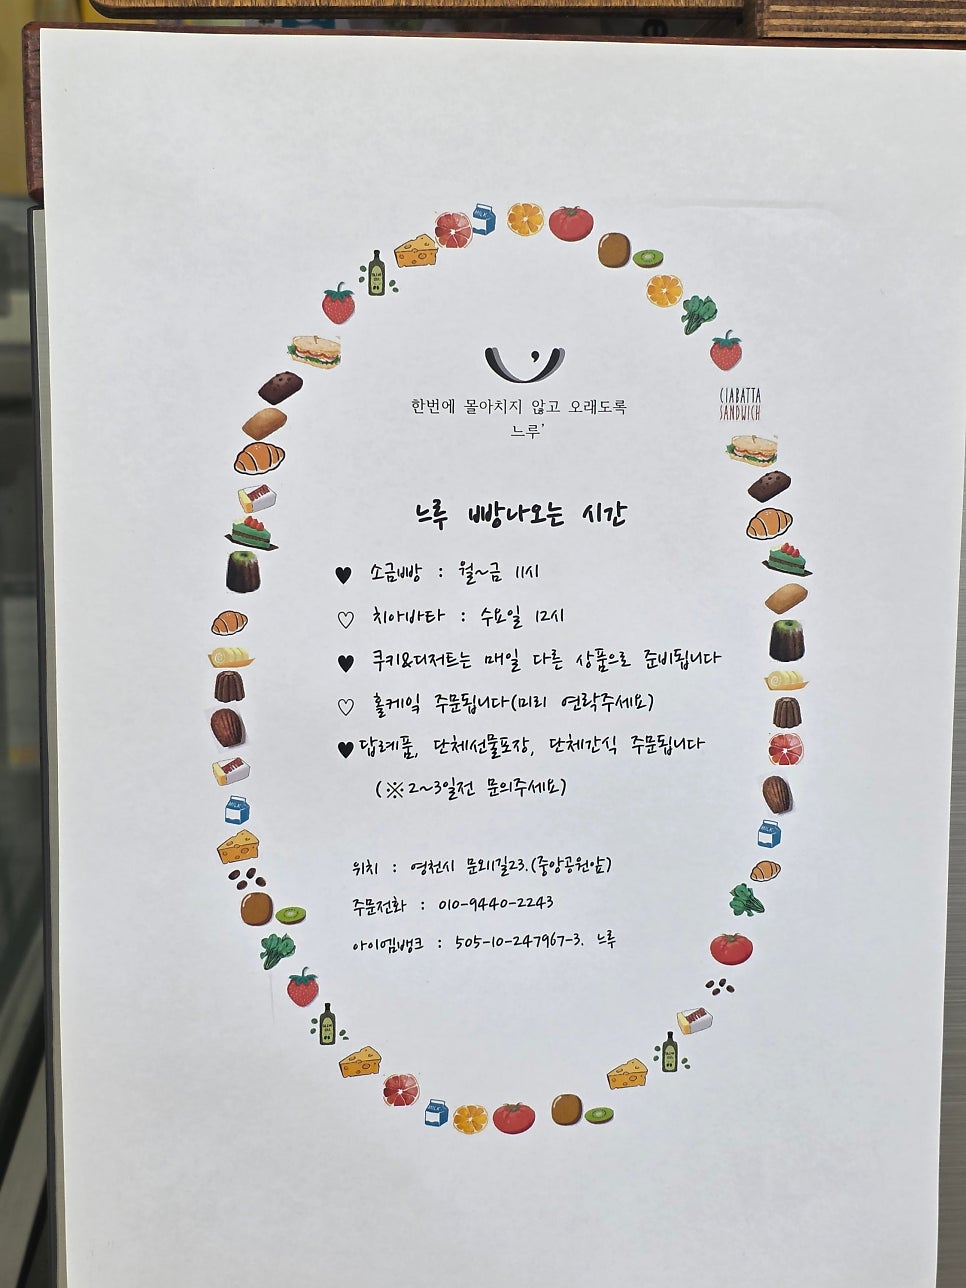 한번에 몰아치지 않고 오래도록
느루'
CIABATTA
SANDWICH
느루 빵나오는 시간
♥ 소금빵 : 월~금 11시
♡ 치아바타 : 수요일 12시
♥ 쿠키&디저트는 매일 다른 상품으로 준비됩니다
♡ 홀케잌 주문됩니다(미리 연락주세요)
♥답례품, 단체선물포장, 단체간식 주문됩니다
(※2~3일전 문의주세요)
위치 : 영천시 문외1길23.(중앙공원앞)
주문전화 : 010-9440-2243
아이엠뱅크 : 505-10-247967-3. 느루